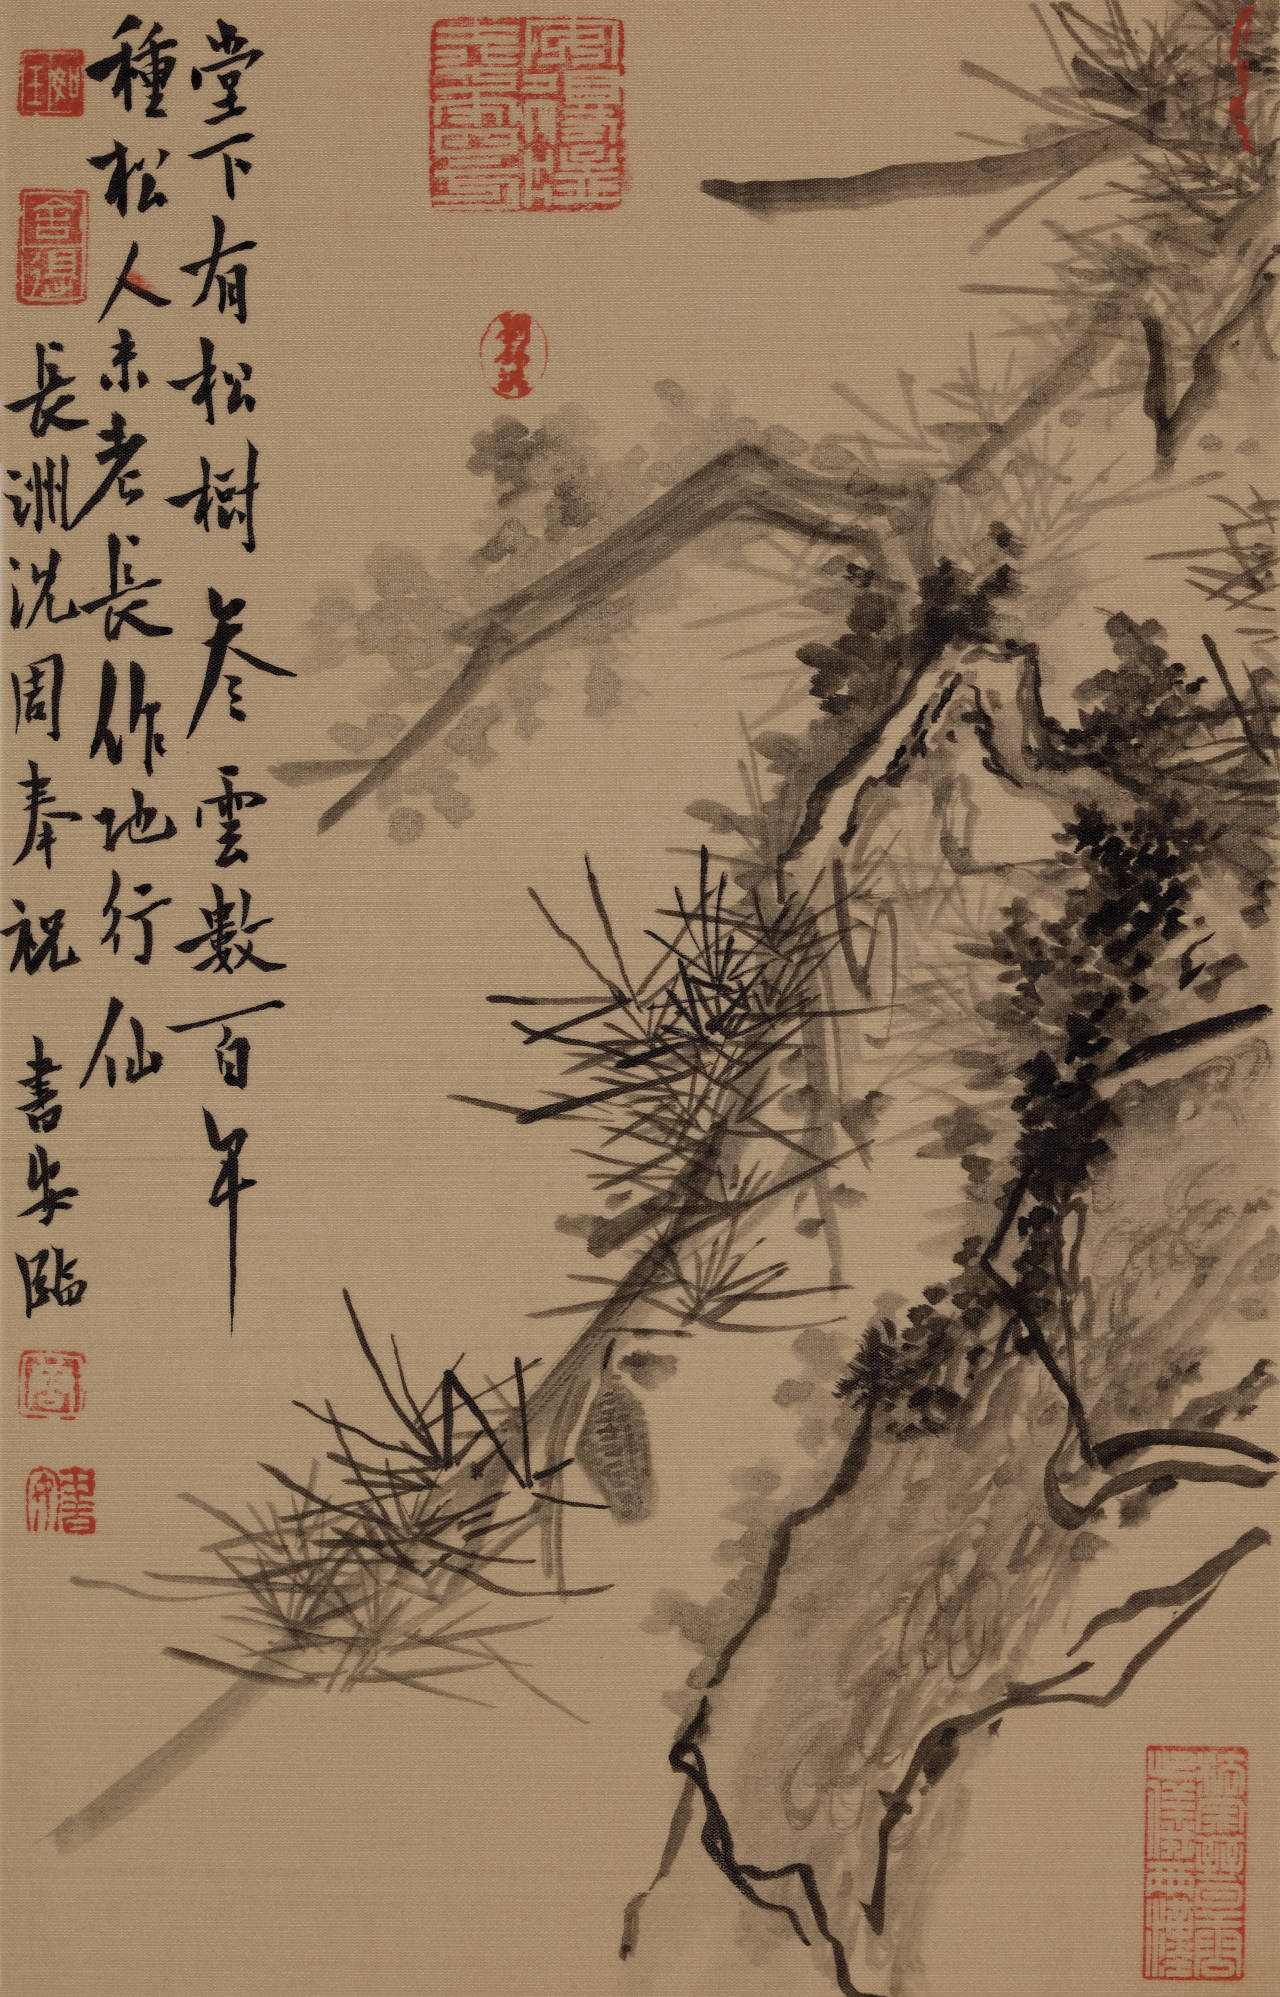 堂下有松樹參雲數百年
種松人未老長作地行仙
長洲沈周奉祝 書安臨
如玉
舍得
書安